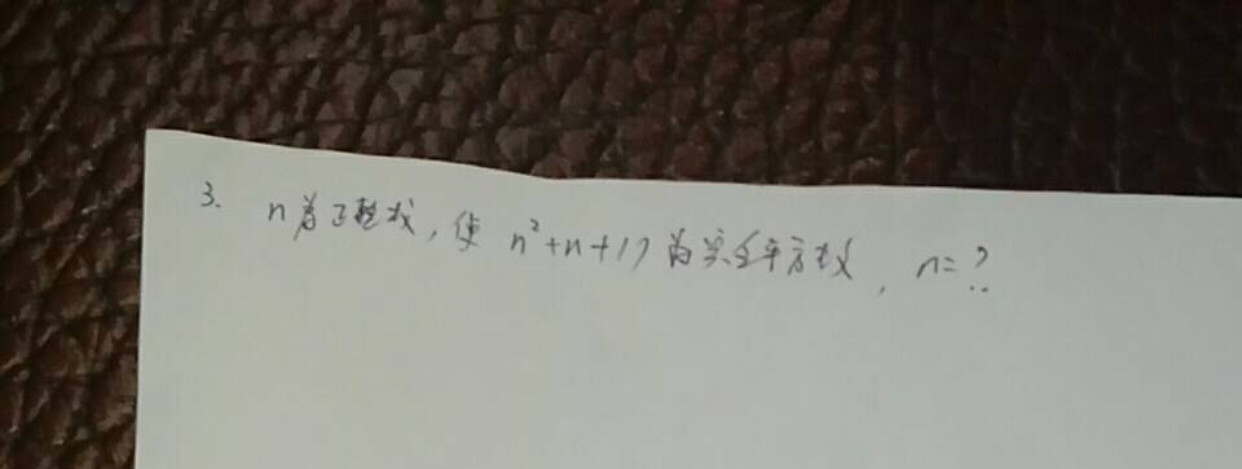 3. n为正整数，使 n²+n+17 为完全平方数，n=?